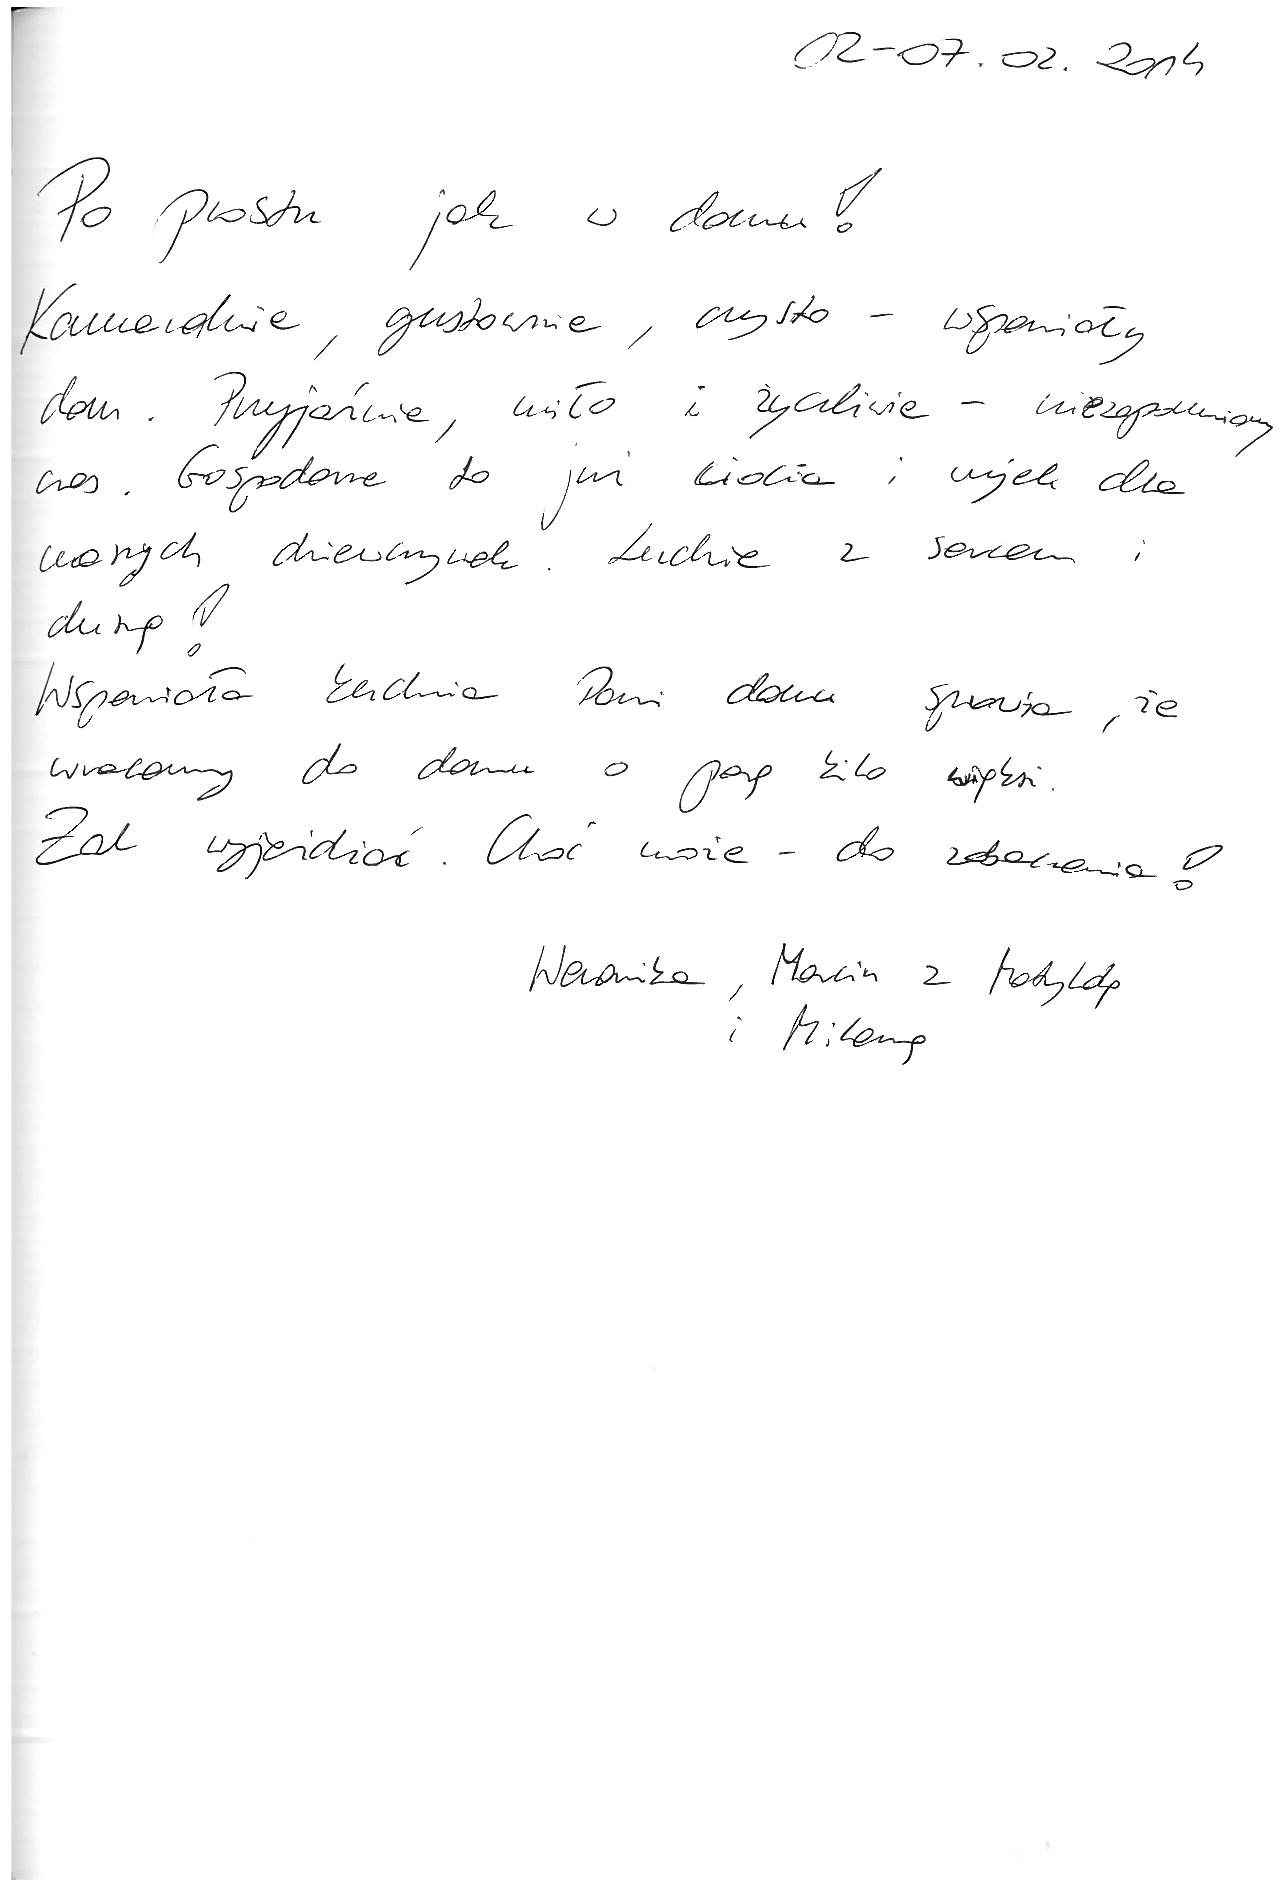 02-07.02.2014
Po prostu jak w domu!
Kameralnie, gustownie, czysto - wspaniały
dom. Przyjaźnie, miło i życzliwie - niezapomniany
czas. Gospodarze to już ciocia i wujek dla
naszych dziewczynek. Ludzie z sercem i
duszą!
Wspaniała kuchnia Pani domu sprawia, że
wracamy do domu o parę kilo więksi.
Żal wyjeżdżać. Choć może - do zobaczenia!
Weronika, Marcin z Matyldą
i Mileną